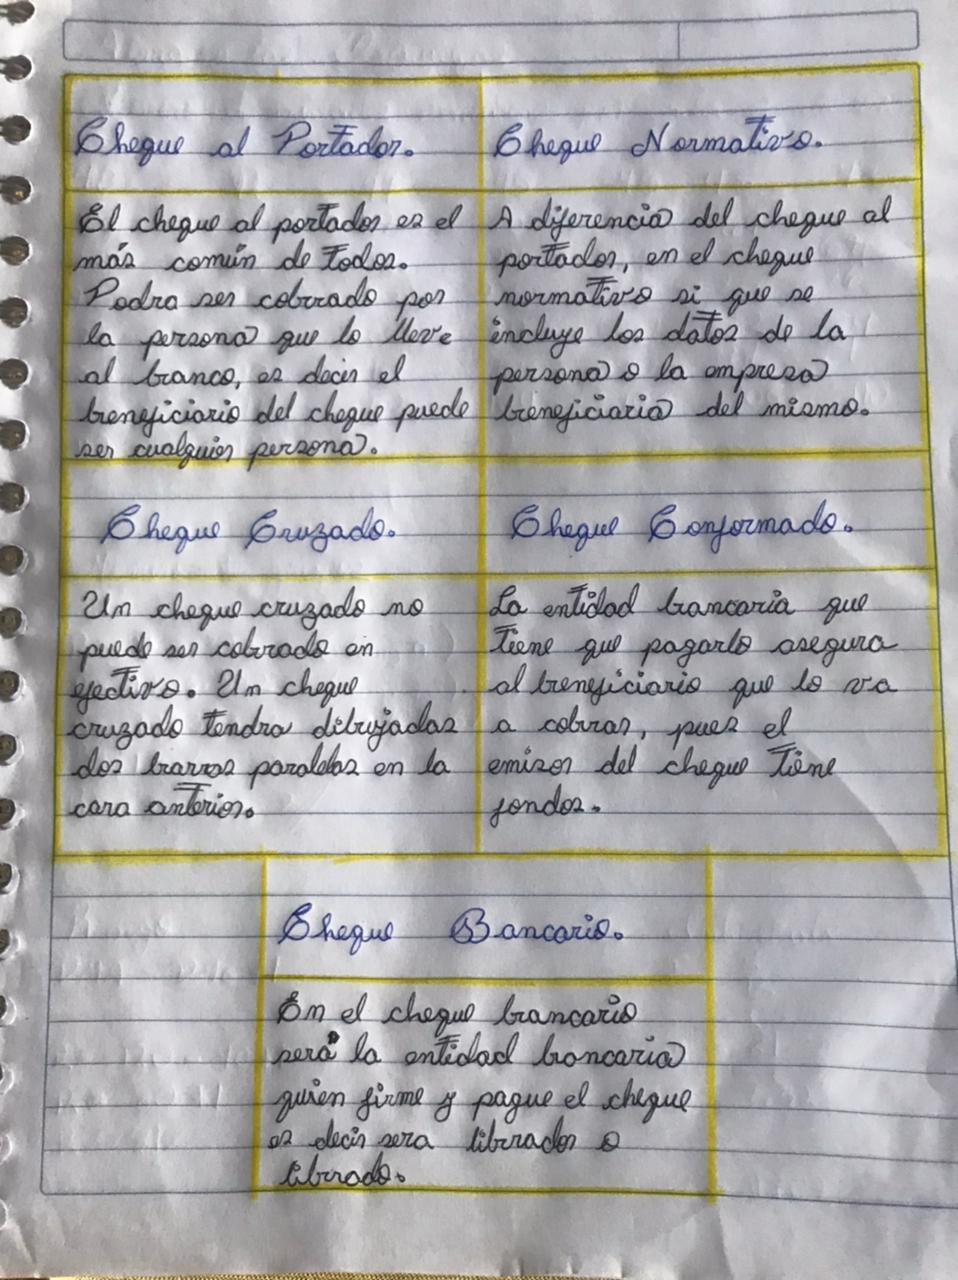 Cheque al Portador.
El cheque al portador es el
más común de todos.
Podra ser cobrado por
la persona que lo lleve
al banco, es decir el
beneficiario del cheque puede
ser cualquier persona.
Cheque Normativo.
A diferencia del cheque al
portador, en el cheque
normativo si que se
incluye los datos de la
persona o la empresa
beneficiaria del mismo.
Cheque Cruzado.
Un cheque cruzado no
puede ser cobrado en
efectivo. Un cheque
cruzado tendra dibujadas
dos barras paralelas en la
cara anterior.
Cheque Conformado.
La entidad bancaria que
tiene que pagarlo asegura
al beneficiario que lo va
a cobrar, pues el
emisor del cheque tiene
fondos.
Cheque Bancario.
En el cheque bancario
será la entidad bancaria
quien firme y pague el cheque
es decir sera librador o
librado.